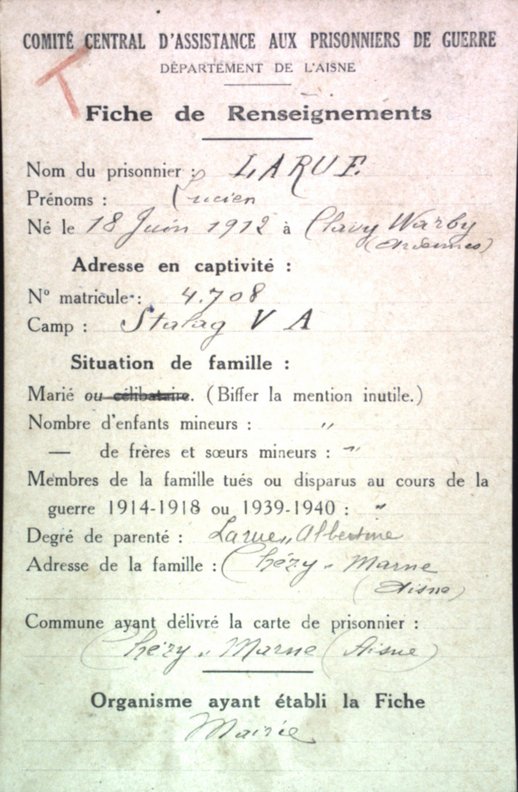 COMITÉ CENTRAL D'ASSISTANCE AUX PRISONNIERS DE GUERRE
DÉPARTEMENT DE L'AISNE
T
Fiche de Renseignements
Nom du prisonnier : LARUE
Prénoms : Lucien
Né le 18 Juin 1912 à Clavy Warby
(Ardennes)
Adresse en captivité :
N° matricule : 4.708
Camp : Stalag V A
Situation de famille :
Marié ou célibataire. (Biffer la mention inutile.)
Nombre d'enfants mineurs : "
— de frères et sœurs mineurs : "
Membres de la famille tués ou disparus au cours de la
guerre 1914-1918 ou 1939-1940 : "
Degré de parenté : Larue Albertine
Adresse de la famille : Chézy s. Marne
(Aisne)
Commune ayant délivré la carte de prisonnier :
Chézy s. Marne (Aisne)
Organisme ayant établi la Fiche
Mairie